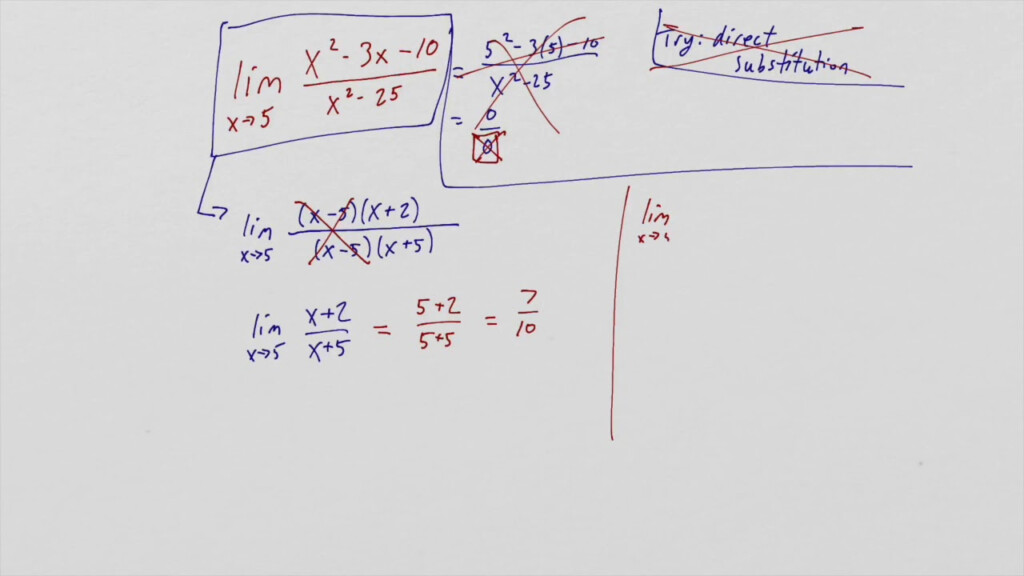 lim x→5 (x² - 3x - 10)/(x² - 25) = (5² - 3(5) - 10)/(x² - 25)
= 0/0
Try: direct
substitution
lim x→5 ((x-5)(x+2))/((x-5)(x+5))
lim x→5 (x+2)/(x+5) = (5+2)/(5+5) = 7/10
lim x→